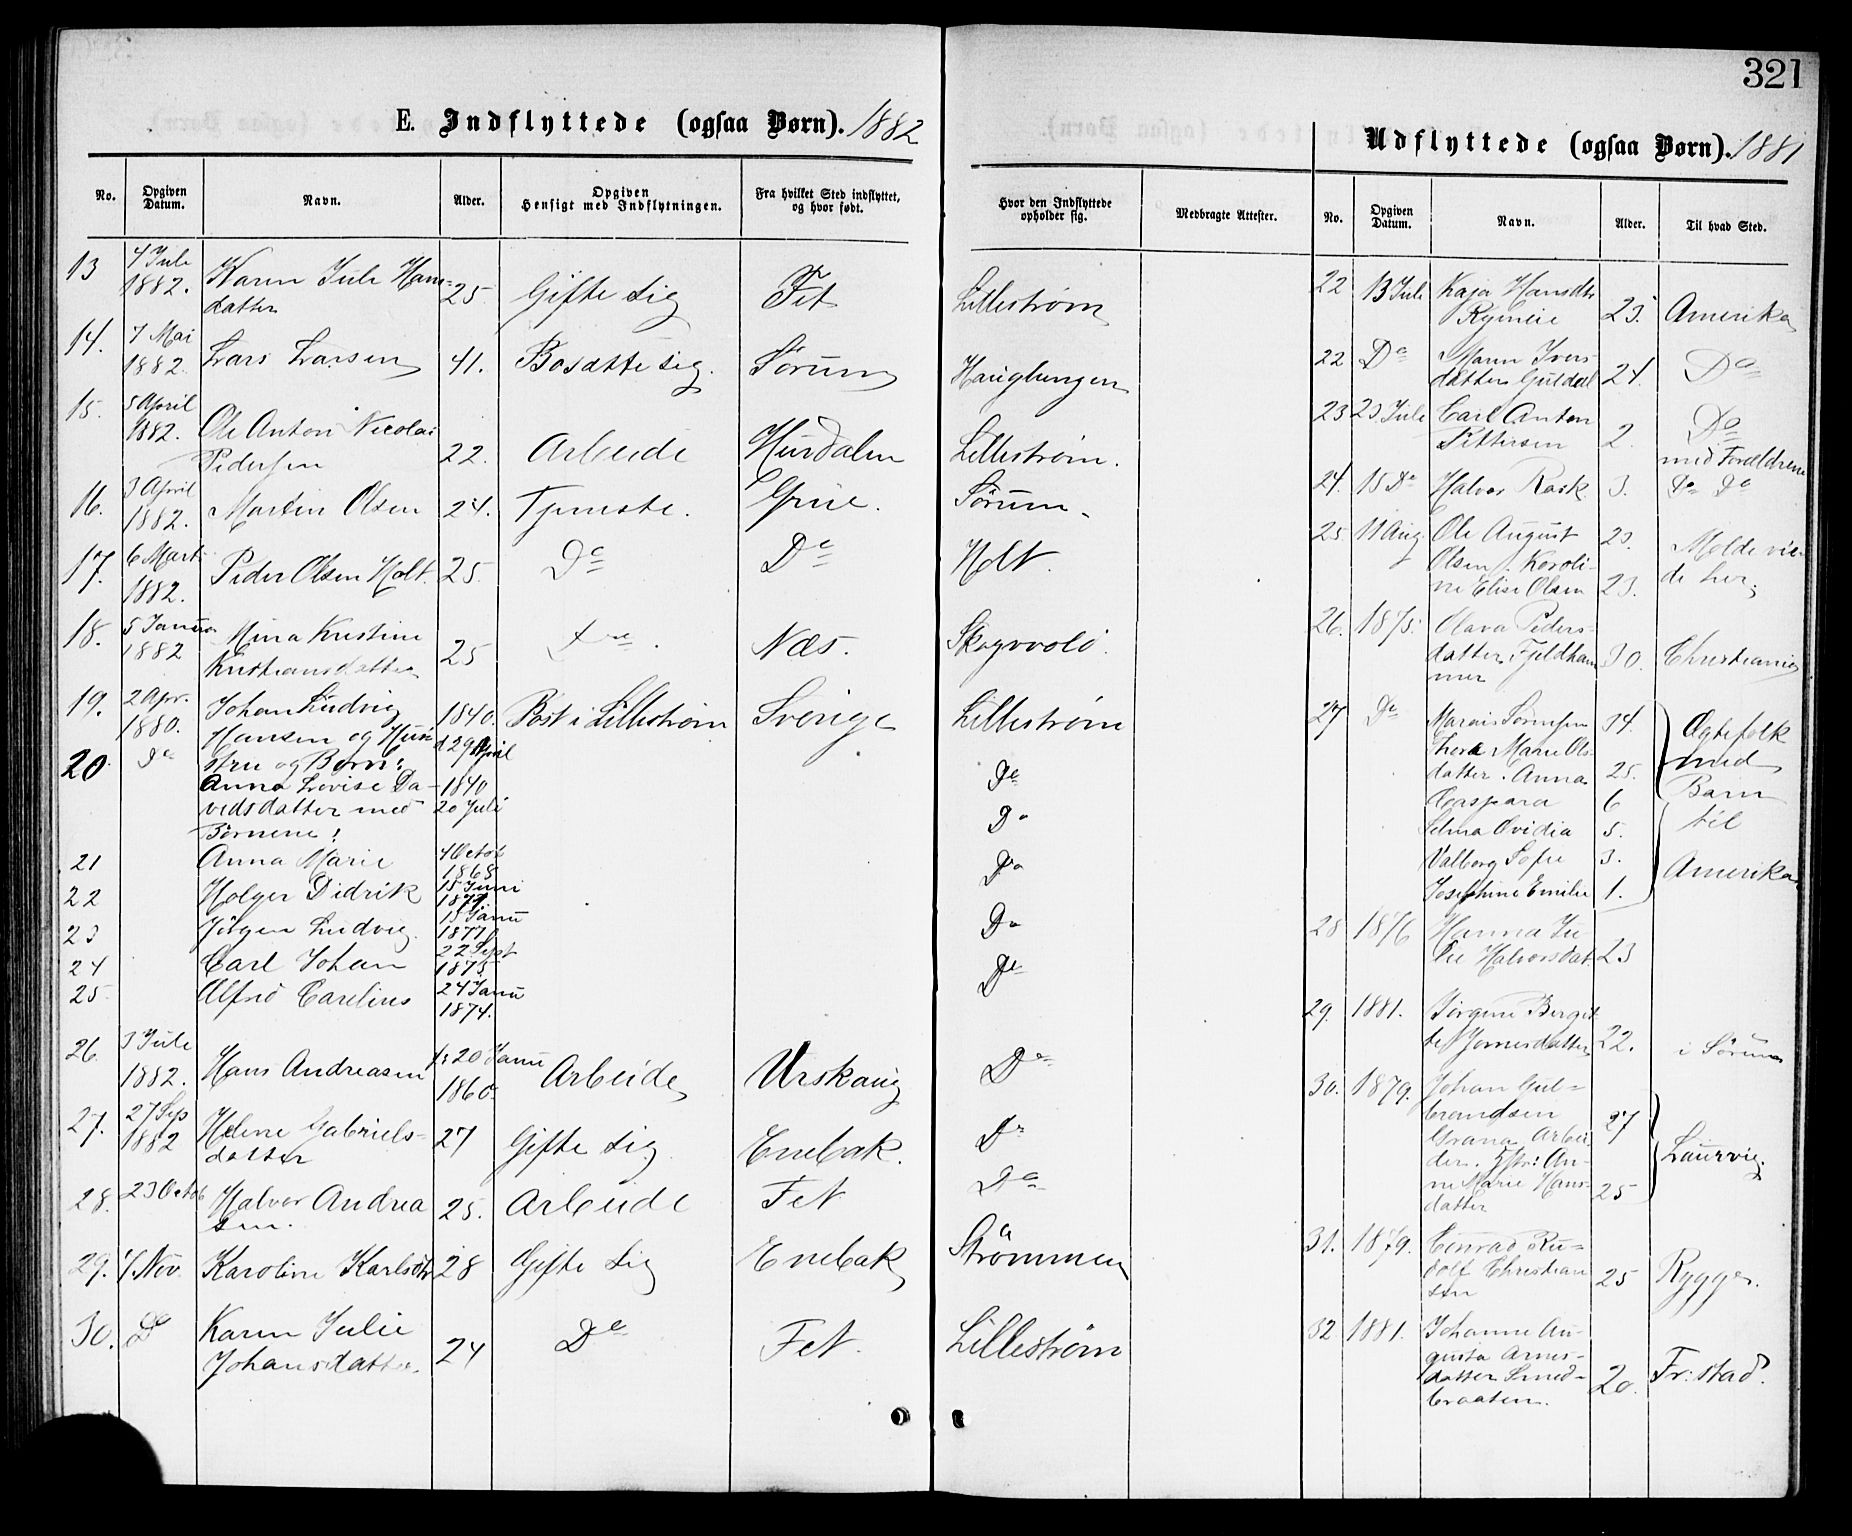 321
E. Indflyttede (ogsaa Børn). 1882
No. Opgiven Datum. Navn. Alder. Opgiven Hensigt med Indflytningen. Fra hvilket Sted indflyttet, og hvor født. Hvor den Indflyttede opholder sig. Medbragte Attester.
13 4 Juli 1882. Karen Juli Hans-
datter 25 Gifte sig Fet Lillestrøm
14. 7 Mai 1882 Lars Larsen 41. Bosætte sig. Sørum
15. 5 April 1882. Ole Anton Nicolai
Pedersen 22. Arbeide Hurdalen Lillestrøm.
16. 3 April 1882. Martin Olsen 24. Tjeneste. Grue. Sørum.
17. 6 Marts 1882. Peder Olsen Holt. 25. Do Do Holt
18. 5 Janua 1882 Mina Kristine
Kristiansdatter 25 Næs. Skogvold.
19. 2 Apr. 1880. Johan Ludvig 1840. Bost i Lillestrøm Sverige Lillestrøm
Hansen og Hu- d 29 April
20. Do stru og Børn: Do
Anna Lovise Da- 1840
vidsdatter med 20 Juli Do
Børnene:
21 Anna Marie 4 Octob 1868 Do
22 Holger Didrik 15 Juni
23 Jörgen Ludvig 15 Janu Do
24 Carl Johan 22 Sept 1875 Do
25 Alfred Carelius 24 Janu
1874.
26. 3 Juli 1882. Hans Andreasen 20 Janu 1860. Arbeide Urskoug Do
27. 27 Sep 1882 Helene Gabriels-
datter 27 Gifte sig Enebak. Do
28. 23 Octob Halvor Andrea
sen. 25. Arbeide Fet Do
29. 4 Nov. Karoline Karlsdtr 28 Gifte sig Enebak Strømmen
30. Do Karen Julie
Johansdatter. 24 Do Fet. Lillestrøm
Udflyttede (ogsaa Børn). 1881
No. Opgiven Datum. Navn. Alder. Til hvad Sted.
22 13 Juli Kaja Hansdtr
23. Amerika
22 Do Maren Ivers-
datter Guldal 24. Do
23 23 Juli Carl Anton
Pettersen 2. Do
med Forældrene
24. 15 Do Halvor Rask 3. Do Do
25 11 Aug. Ole August 23.
Olsen f. Karoli-
ne Elise Olsen 23.
26. 1875. Olava Peders-
datter Fjeldham
mer 30. Christiania
27 Do Sørensen 34. Ægtefolk
Thera Marie Ols-
datter. Anna 25. med
Caspara 6 Barn
Selma Ovidia 5. til
Valborg Sofie 3.
Josephine Emilie 1. Amerika
28 1876 Hanna Ju-
lie Halvorsdat. 23
29. 1881. Jørgine Bergit-
te 22. i Sørum
30. 1879. Johan Gul-
brandsen 27
Grana, Arbei
der. Hstr: An-
ne Marie Hans-
datter 25 Laurvig.
31. 1879. Conrad Ru-
dolf Christian
sen 25 Rygge.
32 1881. Johanne Au-
gusta Arnes-
datter Smed-
braaten. 20. Fr:stad.